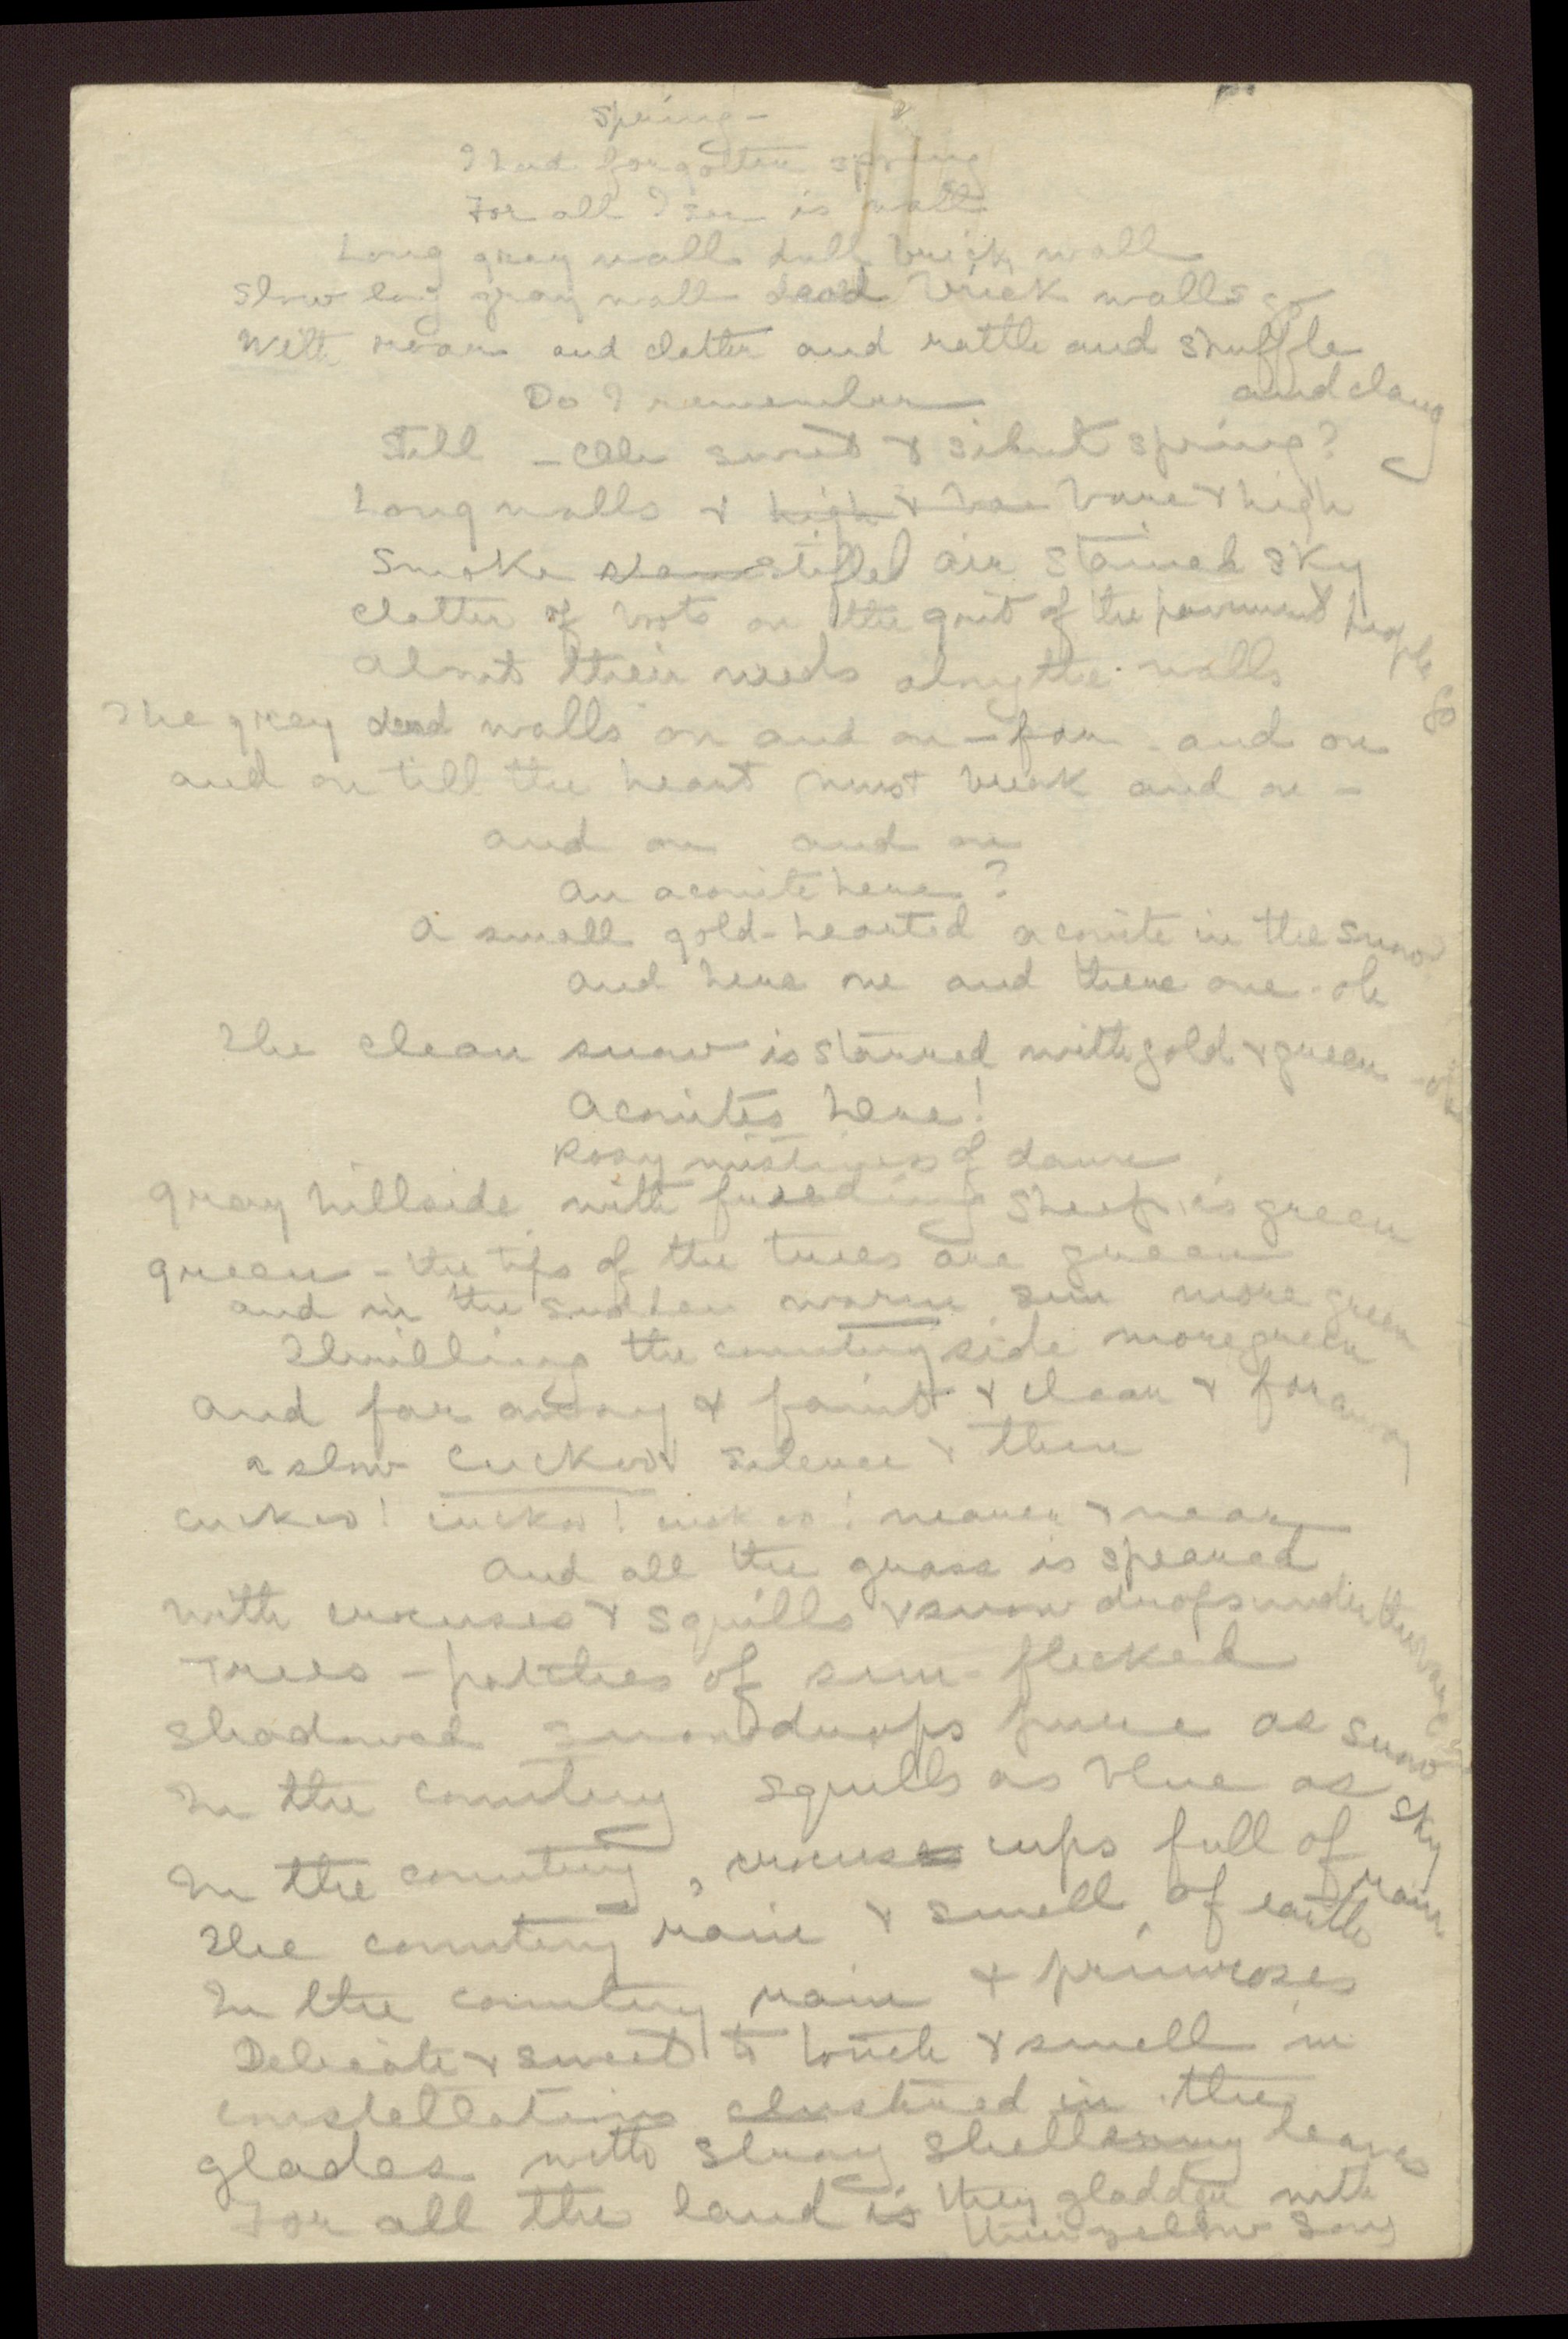 Spring -
I had forgotten spring
For all I see is wall
Long gray wall dull brick wall
Slow long gray wall dead brick walls go
With roar and clatter and rattle and shuffle
and clang
Do I remember
Still - Oh sweet & silent spring?
Long walls & high & bare & high
Smoke stifled air stained sky
clatter of boots on the grit of the pavement people go
about their needs along the walls
The grey dead walls on and on - far and on
and on till the heart must break and on -
and on and on
An aconite here?
A small gold-hearted aconite in the snow
and here one and there one - oh
The clean snow is starred with gold & green - oh
Aconites here!
Rosy mistiness of dawn
gray hillside with feeding sheep is green
green - the tips of the trees are green
and in the sudden warm sun more green
Thrilling the countryside more green
And far away & faint & clear & far away
a slow cuckoo & silence & then
cuckoo! cuckoo! cuckoo! nearer & near
And all the grass is speared
with crocuses & squills & snow drops under the
Trees - patches of sun-flecked
shadowed snowdrops pure as snow
In the country squills as blue as sky
In the country, crocus cups full of rain
The country rain & smell of earth
In the country rain & primroses
Delicate & sweet to touch & smell in
constellations clustered in the
glades with strong sheltering leaves
For all the land is they gladden with
their yellow song